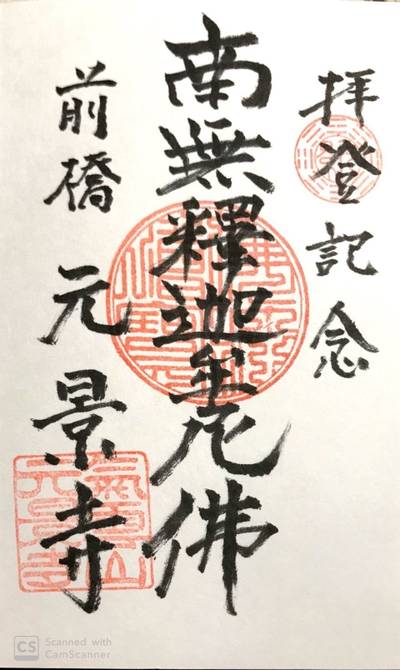 拝登記念
南無釋迦牟尼佛
前橋 元景寺
CS Scanned with
CamScanner